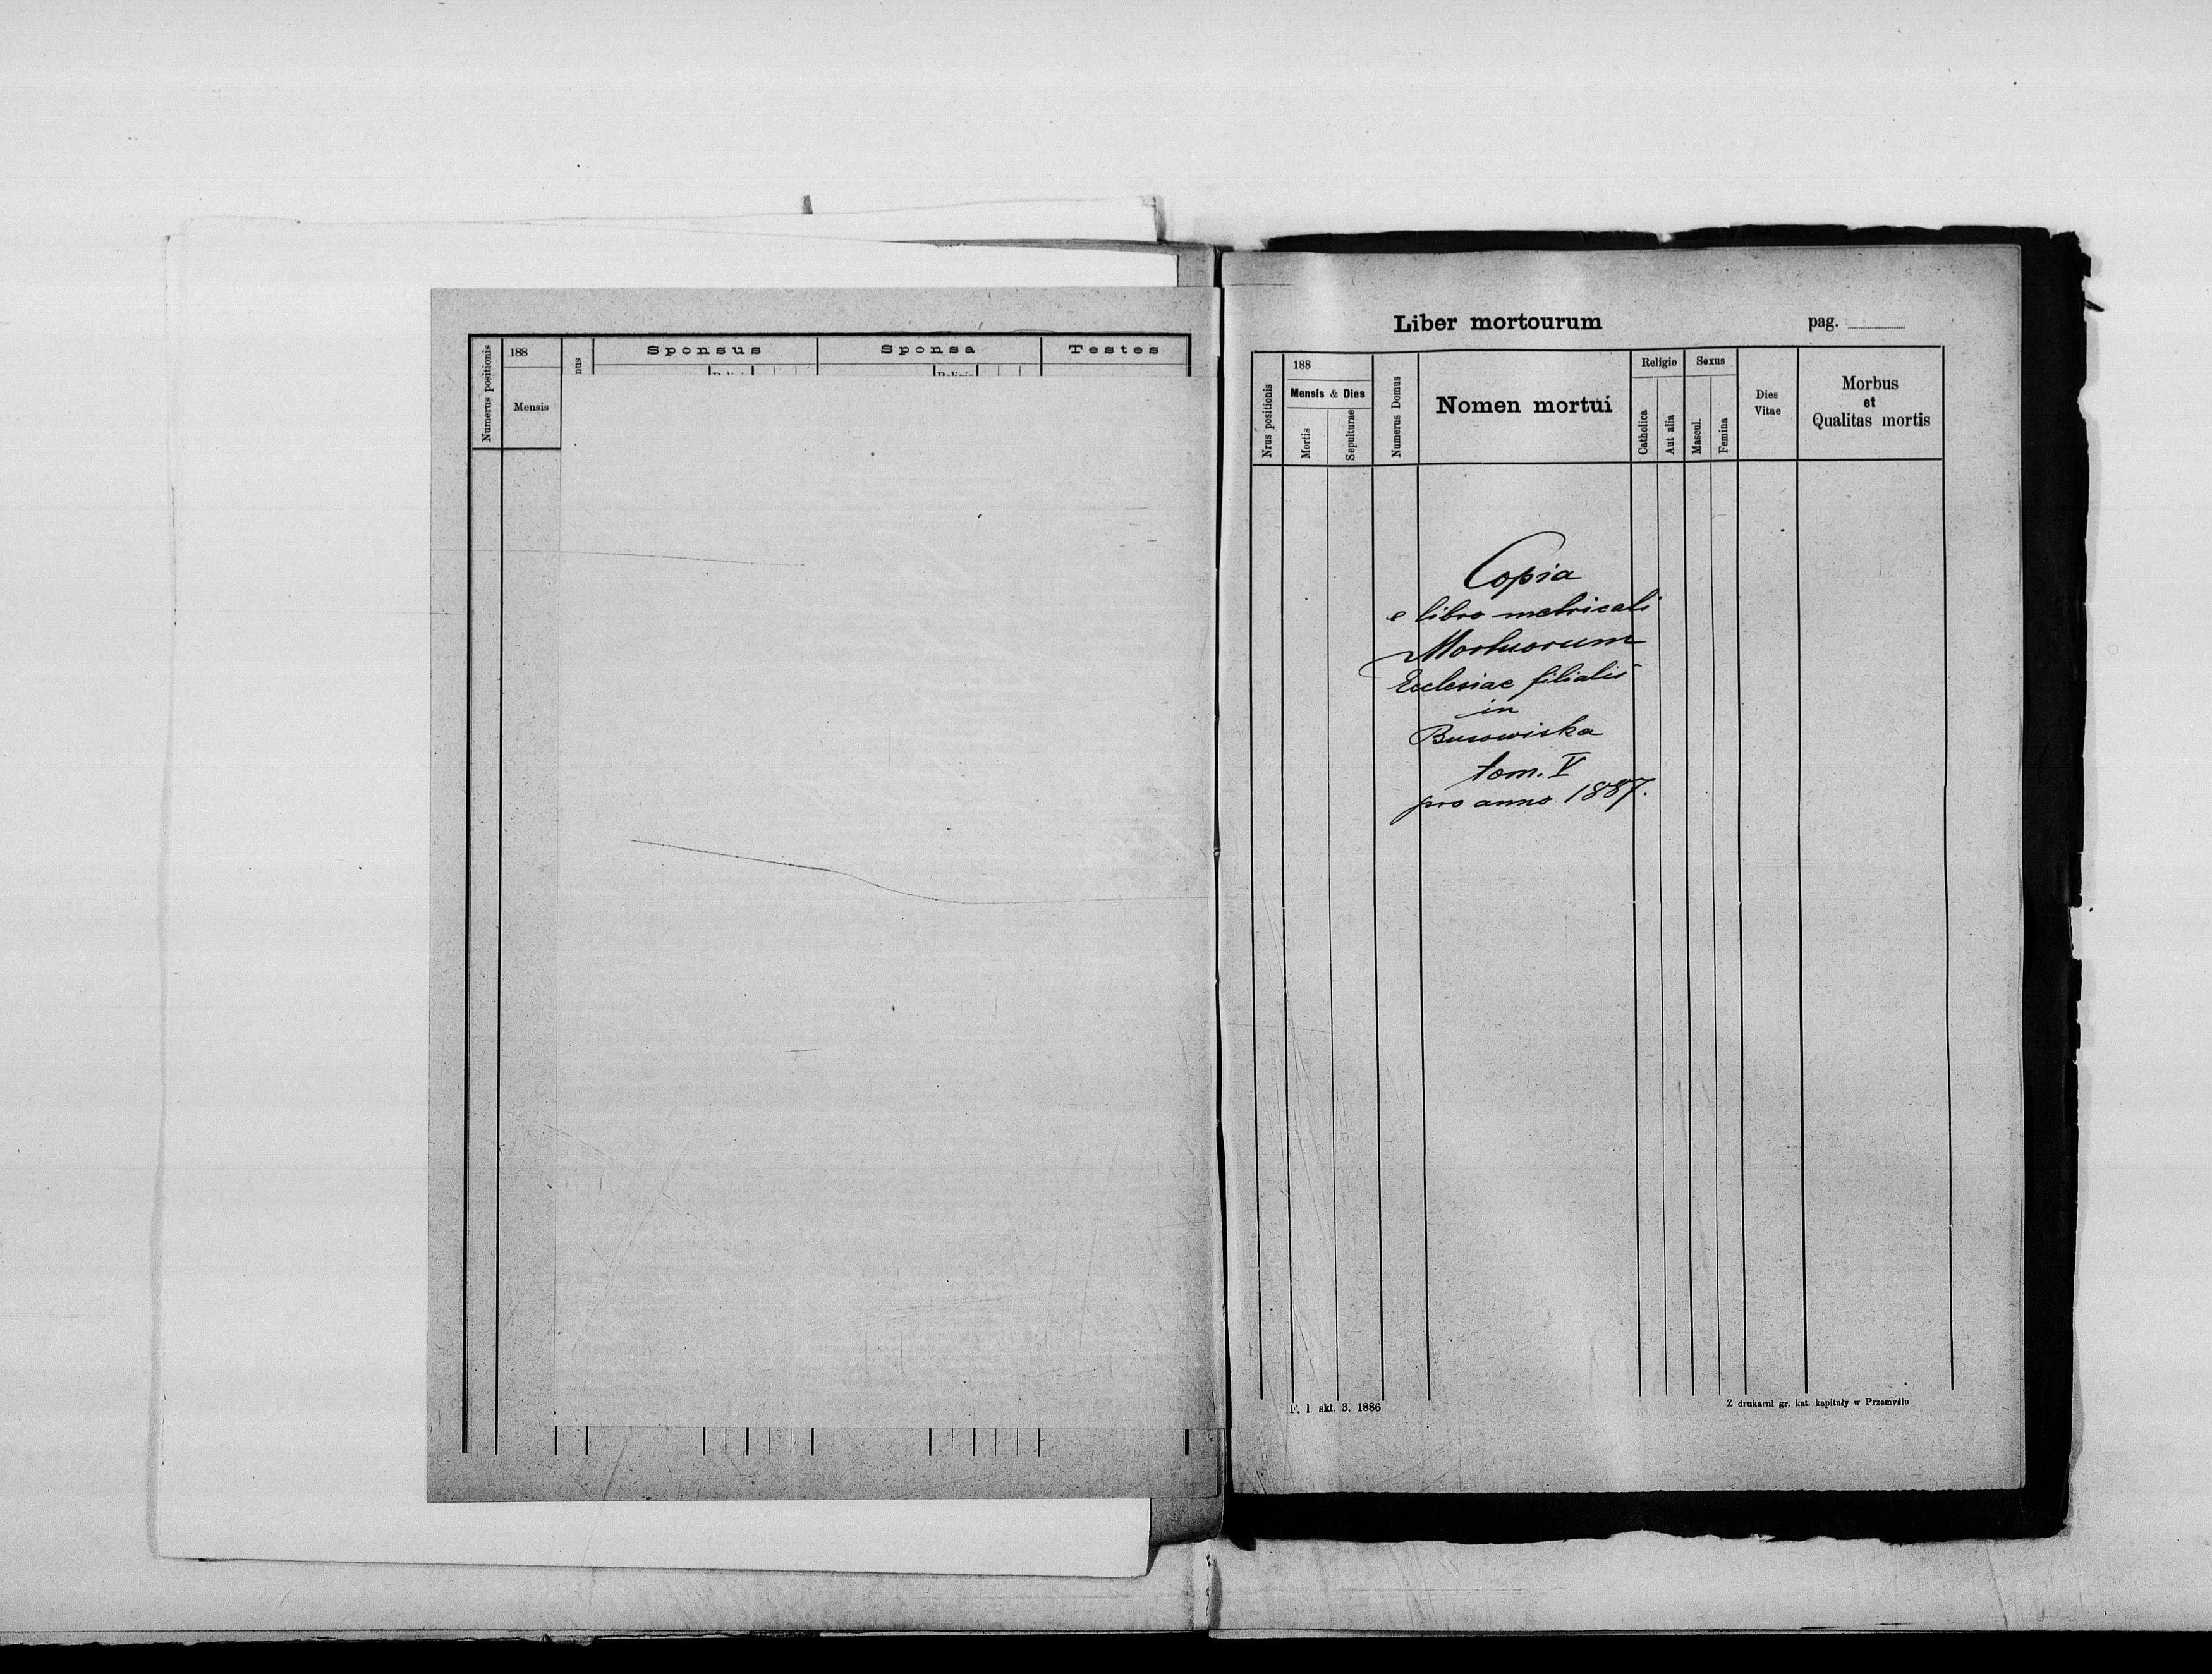 Numerus positionis
188
Mensis
nus
Sponsus
Sponsa
Testes
Liber mortourum
pag.
Nrus positionis
188
Mensis & Dies
Mortis
Sepulturae
Numerus Domus
Nomen mortui
Religio
Catholica
Aut alia
Sexus
Mascul.
Femina
Dies
Vitae
Morbus
et
Qualitas mortis
Copia
e libro metricali
Mortuorum
Ecclesiae filialis
in
Busowiska
tom. V
pro anno 1887.
F. l. skł. 3. 1886
Z drukarni gr. kat. kapituły w Przemyślu